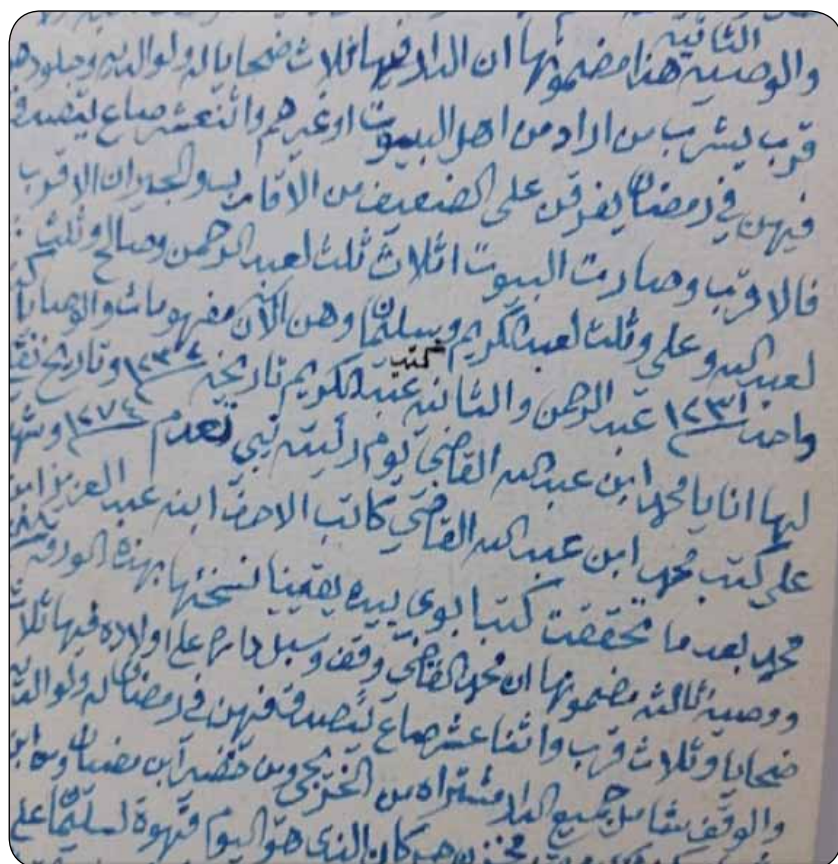 الثانية
والوصية هذا مضمونها ان الدار فيها ثلاث ضحايا له ولوالديه وجلودهن
قرب يشرب من اراد من اهل البيوت او غيرهم واثنعشر صاع يتصدق
فيهن في رمضان يفرقن على الضعيف من الاقارب والجيران الاقرب
فالاقرب وصارت البيوت اثلاث ثلث لعبد الرحمن وصالح وثلث
لعبد الله وعلي وثلث لعبد الكريم وسليمان وهن الان مفهومات والوصايا
واحد ١٢٣١ عبد الرحمن والثانيه كتب عبد الكريم تاريخه وتاريخ
لها انا يا محمد ابن عبد الله القاضي يوم رئيته تبي تعدم ١٢٧٤ وشهد
على كتب محمد ابن عبد الله القاضي كاتب الاحرف ابنه عبد العزيز ابن
محمد بعد ما تحققت كتب ابوي بيده يقينا نسختها بهذه الورقه
ووصية ثالثه مضمونها ان محمد القاضي وقف وسبل داره على اولاده فيها ثلاث
ضحايا وثلاث قرب واثنا عشر صاع يتصدق فيهن في رمضان له ولوالديه
والوقف شامل جميع الدار مشتراه من الخريجي ومن خضير ابن
كان الذي هو اليوم قهوة لسليمان على